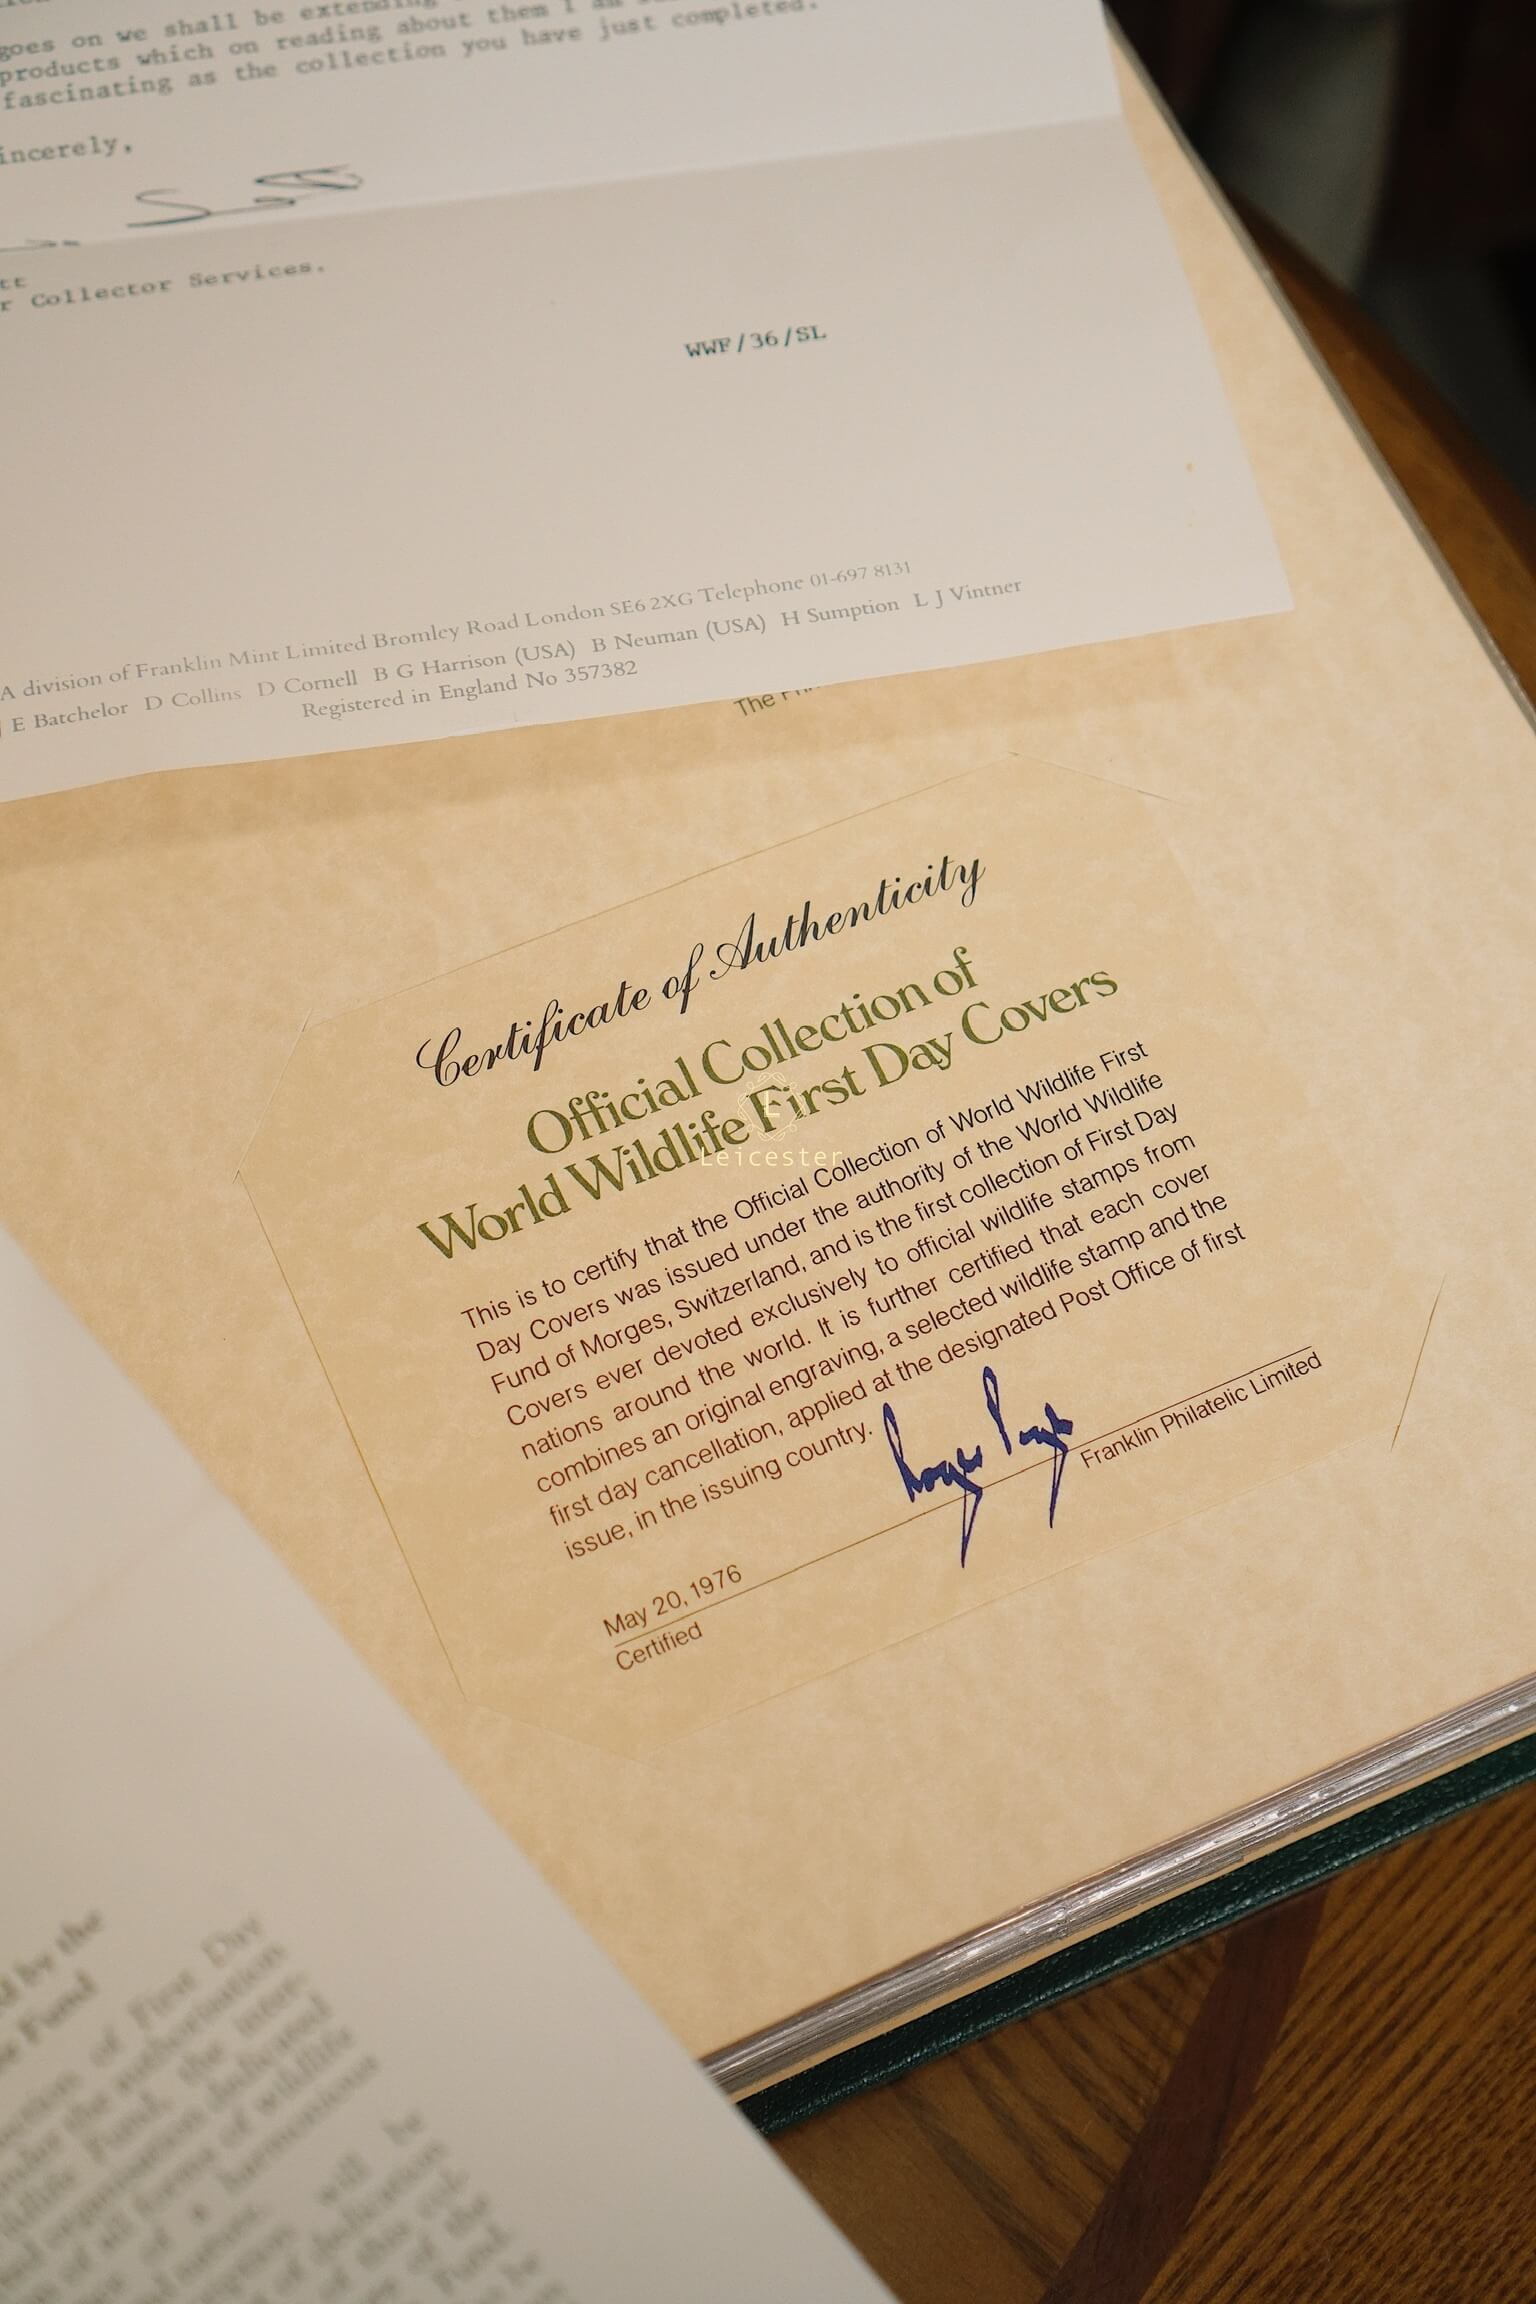 goes on we shall be extending
products which on reading about them I am
fascinating as the collection you have just completed.
incerely,
tt
r Collector Services.
WWF/36/SL
A division of Franklin Mint Limited Bromley Road London SE6 2XG Telephone 01-697 8131
J E Batchelor D Collins D Cornell B G Harrison (USA) B Neuman (USA) H Sumption L J Vintner
Registered in England No 357382
The
Certificate of Authenticity
Official Collection of
World Wildlife First Day Covers
Leicester
This is to certify that the Official Collection of World Wildlife First
Day Covers was issued under the authority of the World Wildlife
Fund of Morges, Switzerland, and is the first collection of First Day
Covers ever devoted exclusively to official wildlife stamps from
nations around the world. It is further certified that each cover
combines an original engraving, a selected wildlife stamp and the
first day cancellation, applied at the designated Post Office of first
issue, in the issuing country.
Franklin Philatelic Limited
May 20, 1976
Certified
d by the
Fund
of First Day
the authorisation
of wildlife
of a harmonious
will be
of dedication
of the
Fund.